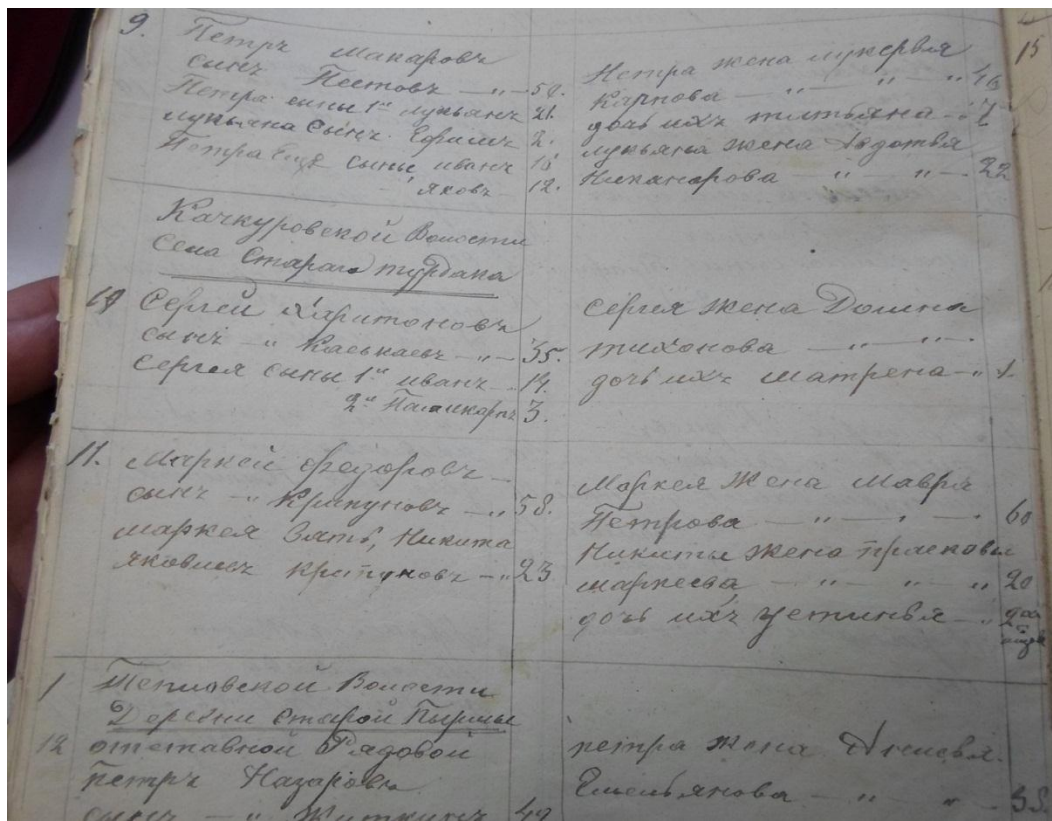 9. Петръ Макаровъ
сынъ Пестовъ — „ — 50.
Петра сыны 1й Лукьянъ 21.
Лукьяна сынъ Ефимъ 2.
Петра еще сыны Иванъ 15
Яковъ 12.
Петра жена Лукерья
Карпова — „ — „ — „ 46
дочь ихъ Татьяна — „ 7
Лукьяна жена Авдотья
Никанорова „ — „ — 22
15
Качкуровской Волости
Села Стараго Турдака
10 Сергей Харитоновъ
сынъ — „ Каськаевъ — „ — 35.
Сергея сыны 1й Иванъ — 14.
2й Паликарпъ 3.
Сергея жена Домна
Тихонова — „ — „ —
дочь ихъ Матрена — „ 1
11. Маркей Федоровъ —
сынъ — „ Крипуновъ — „ 58.
Маркея Зять, Никита
Яковлевъ Крипуновъ — „ 23
Маркея Жена Мавра
Петрова — „ — „ — 60
Никиты жена Прасковья
Маркеева — „ — „ — „ 20
дочь ихъ Устинья — „
1 Тепловской Волости
Деревни Старой Пырмы
12 отставной Рядовой
Петръ Назаровъ
сынъ — „ Житкинъ 49
Петра жена
Емельянова — „ — „ — 38.